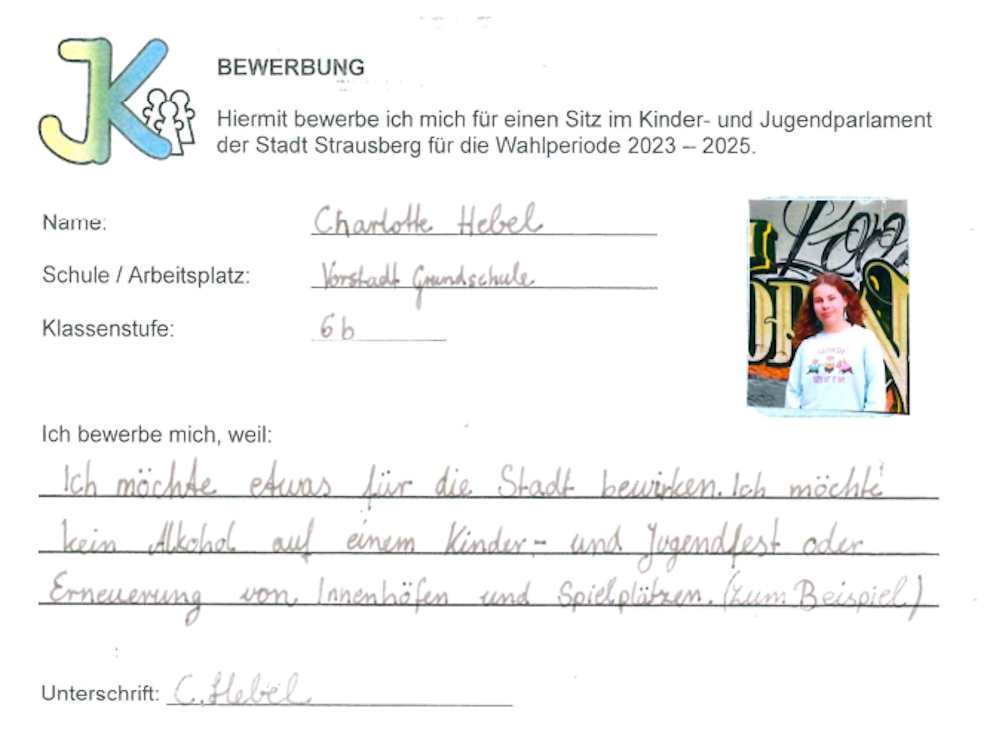 JK
BEWERBUNG
Hiermit bewerbe ich mich für einen Sitz im Kinder- und Jugendparlament
der Stadt Strausberg für die Wahlperiode 2023 – 2025.
Name: Charlotte Hebel
Schule / Arbeitsplatz: Vorstadt Grundschule
Klassenstufe: 6b
Ich bewerbe mich, weil:
Ich möchte etwas für die Stadt bewirken. Ich möchte
kein Alkohol auf einem Kinder- und Jugendfest oder
Erneuerung von Innenhöfen und Spielplätzen. (zum Beispiel)
Unterschrift: C. Hebel